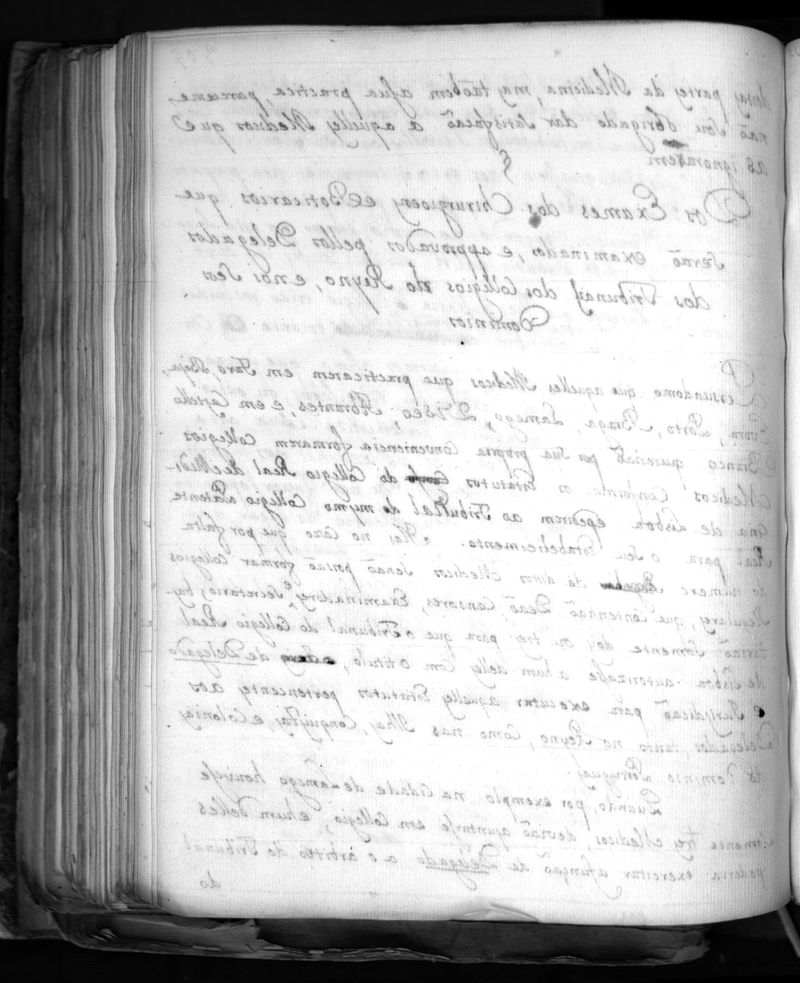 donas partes da Medicina, mas taõbem a sua practica, pareceme,
naõ sou obrigado dar satisfacaõ a aquelles Medicos que
as ignorarem
§
Dos Exames dos Chirurgioens e Boticarios que
seraõ examinados, e approvados pellos Delegados
dos Tribunais dos Collegios do Reyno, e nos seos
Dominios
Persuadome que aquelles Medicos que practicarem em Faro, Beja,
Evora, Porto, Braga, Lamego, Viseo, Abrantes, e em Castello
Branco quereraõ por sua propria conveniencia formarem Collegios
Medicos conforme os Estatutos do Collegio Real de Medi-
cina de Lisboa e pedirem ao Tribunal do mesmo Collegio a Patente
Real para o seu Estabelecimento. no cazo que por falta
do numero de dittos Medicos senaõ possaõ formar Collegios
Regulares, que contenhaõ Deaõ, Censores, Examinadores, e Secretario, bas-
taraõ somente dois ou tres para que o Tribunal do Collegio Real
de Lisboa autorizasse a hum delles com o titulo, de Delegado
e Jurisdicaõ para executar aquelles Estatutos pertencentes aos
Delegados, tanto no Reyno, como nas Ilhas, Conquistas, e Colonias
do Dominio Portuguez.
Quando, por exemplo na Cidade de Lamego houvesse
somente tres Medicos, deviaõ ajuntarse em Collegio, e hum delles
poderia exercitar a funçaõ de Delegado a o arbitrio do Tribunal
do